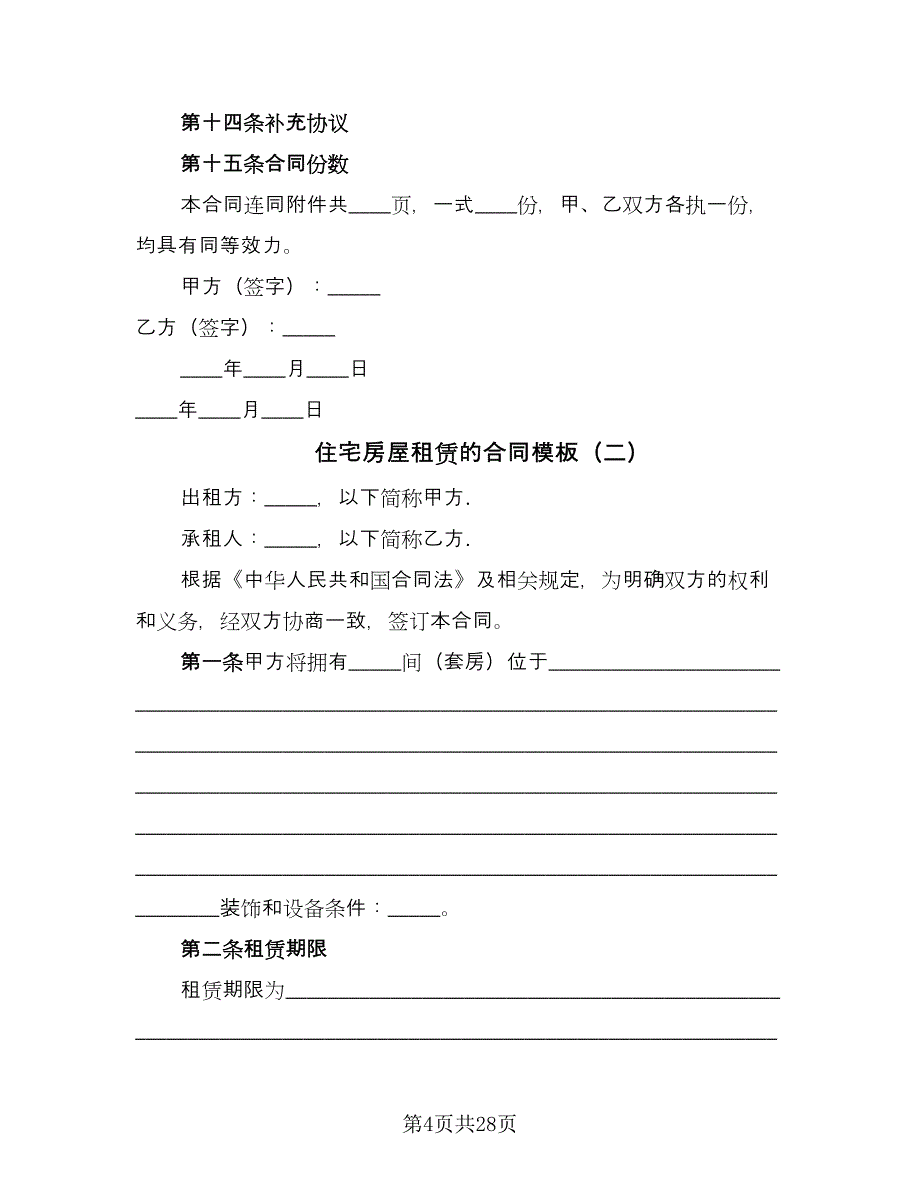 第十四条补充协议
第十五条合同份数
本合同连同附件共____页，一式____份，甲、乙双方各执一份，
均具有同等效力。
甲方（签字）：_____
乙方（签字）：_____
____年____月____日
____年____月____日
住宅房屋租赁的合同模板（二）
出租方：_____，以下简称甲方．
承租人：_____，以下简称乙方．
根据《中华人民共和国合同法》及相关规定，为明确双方的权利
和义务，经双方协商一致，签订本合同。
第一条甲方将拥有_____间（套房）位于______________________
_____________________________________________________________
_____________________________________________________________
_____________________________________________________________
_____________________________________________________________
_____________________________________________________________
________装饰和设备条件：_____。
第二条租赁期限
租赁期限为_______________________________________________
_____________________________________________________________
第4页共28页